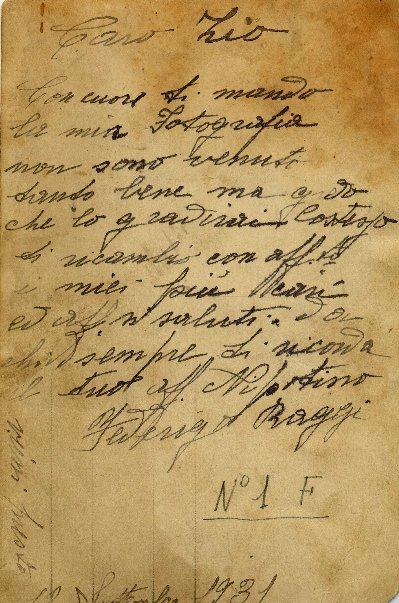 Caro Zio
Con cuore ti mando
la mia Fotografia
non sono venuto
tanto bene ma credo
che lo gradirai lo stesso
ti ricambio con aff.
i miei più cari
ed aff.i saluti. Da
chi sempre ti ricorda
il tuo aff. Nipotino
Federigo Raggi
N° 1 F
Settembre 1931